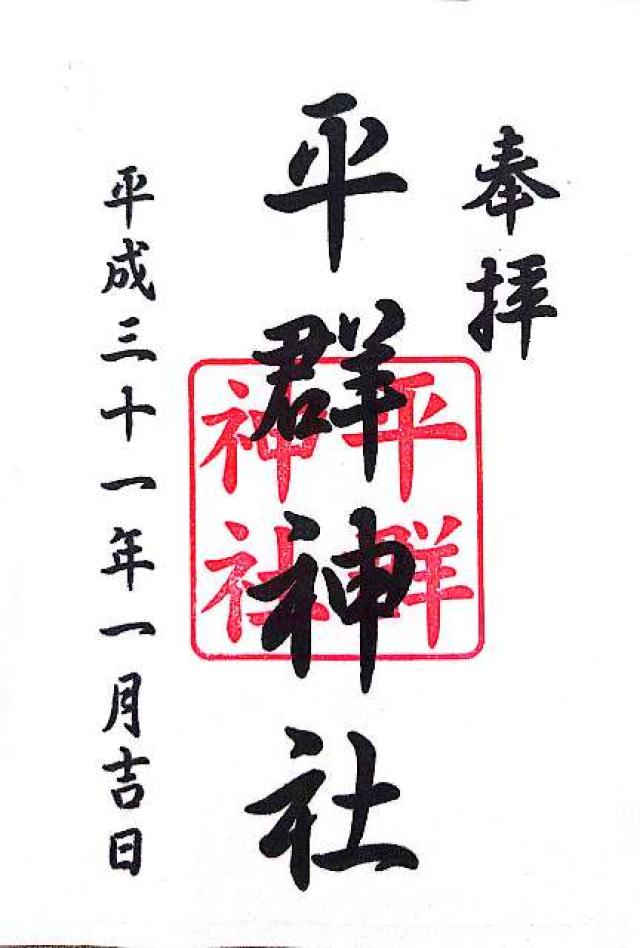 奉拝
平群神社
平群
神社
平成三十一年一月吉日